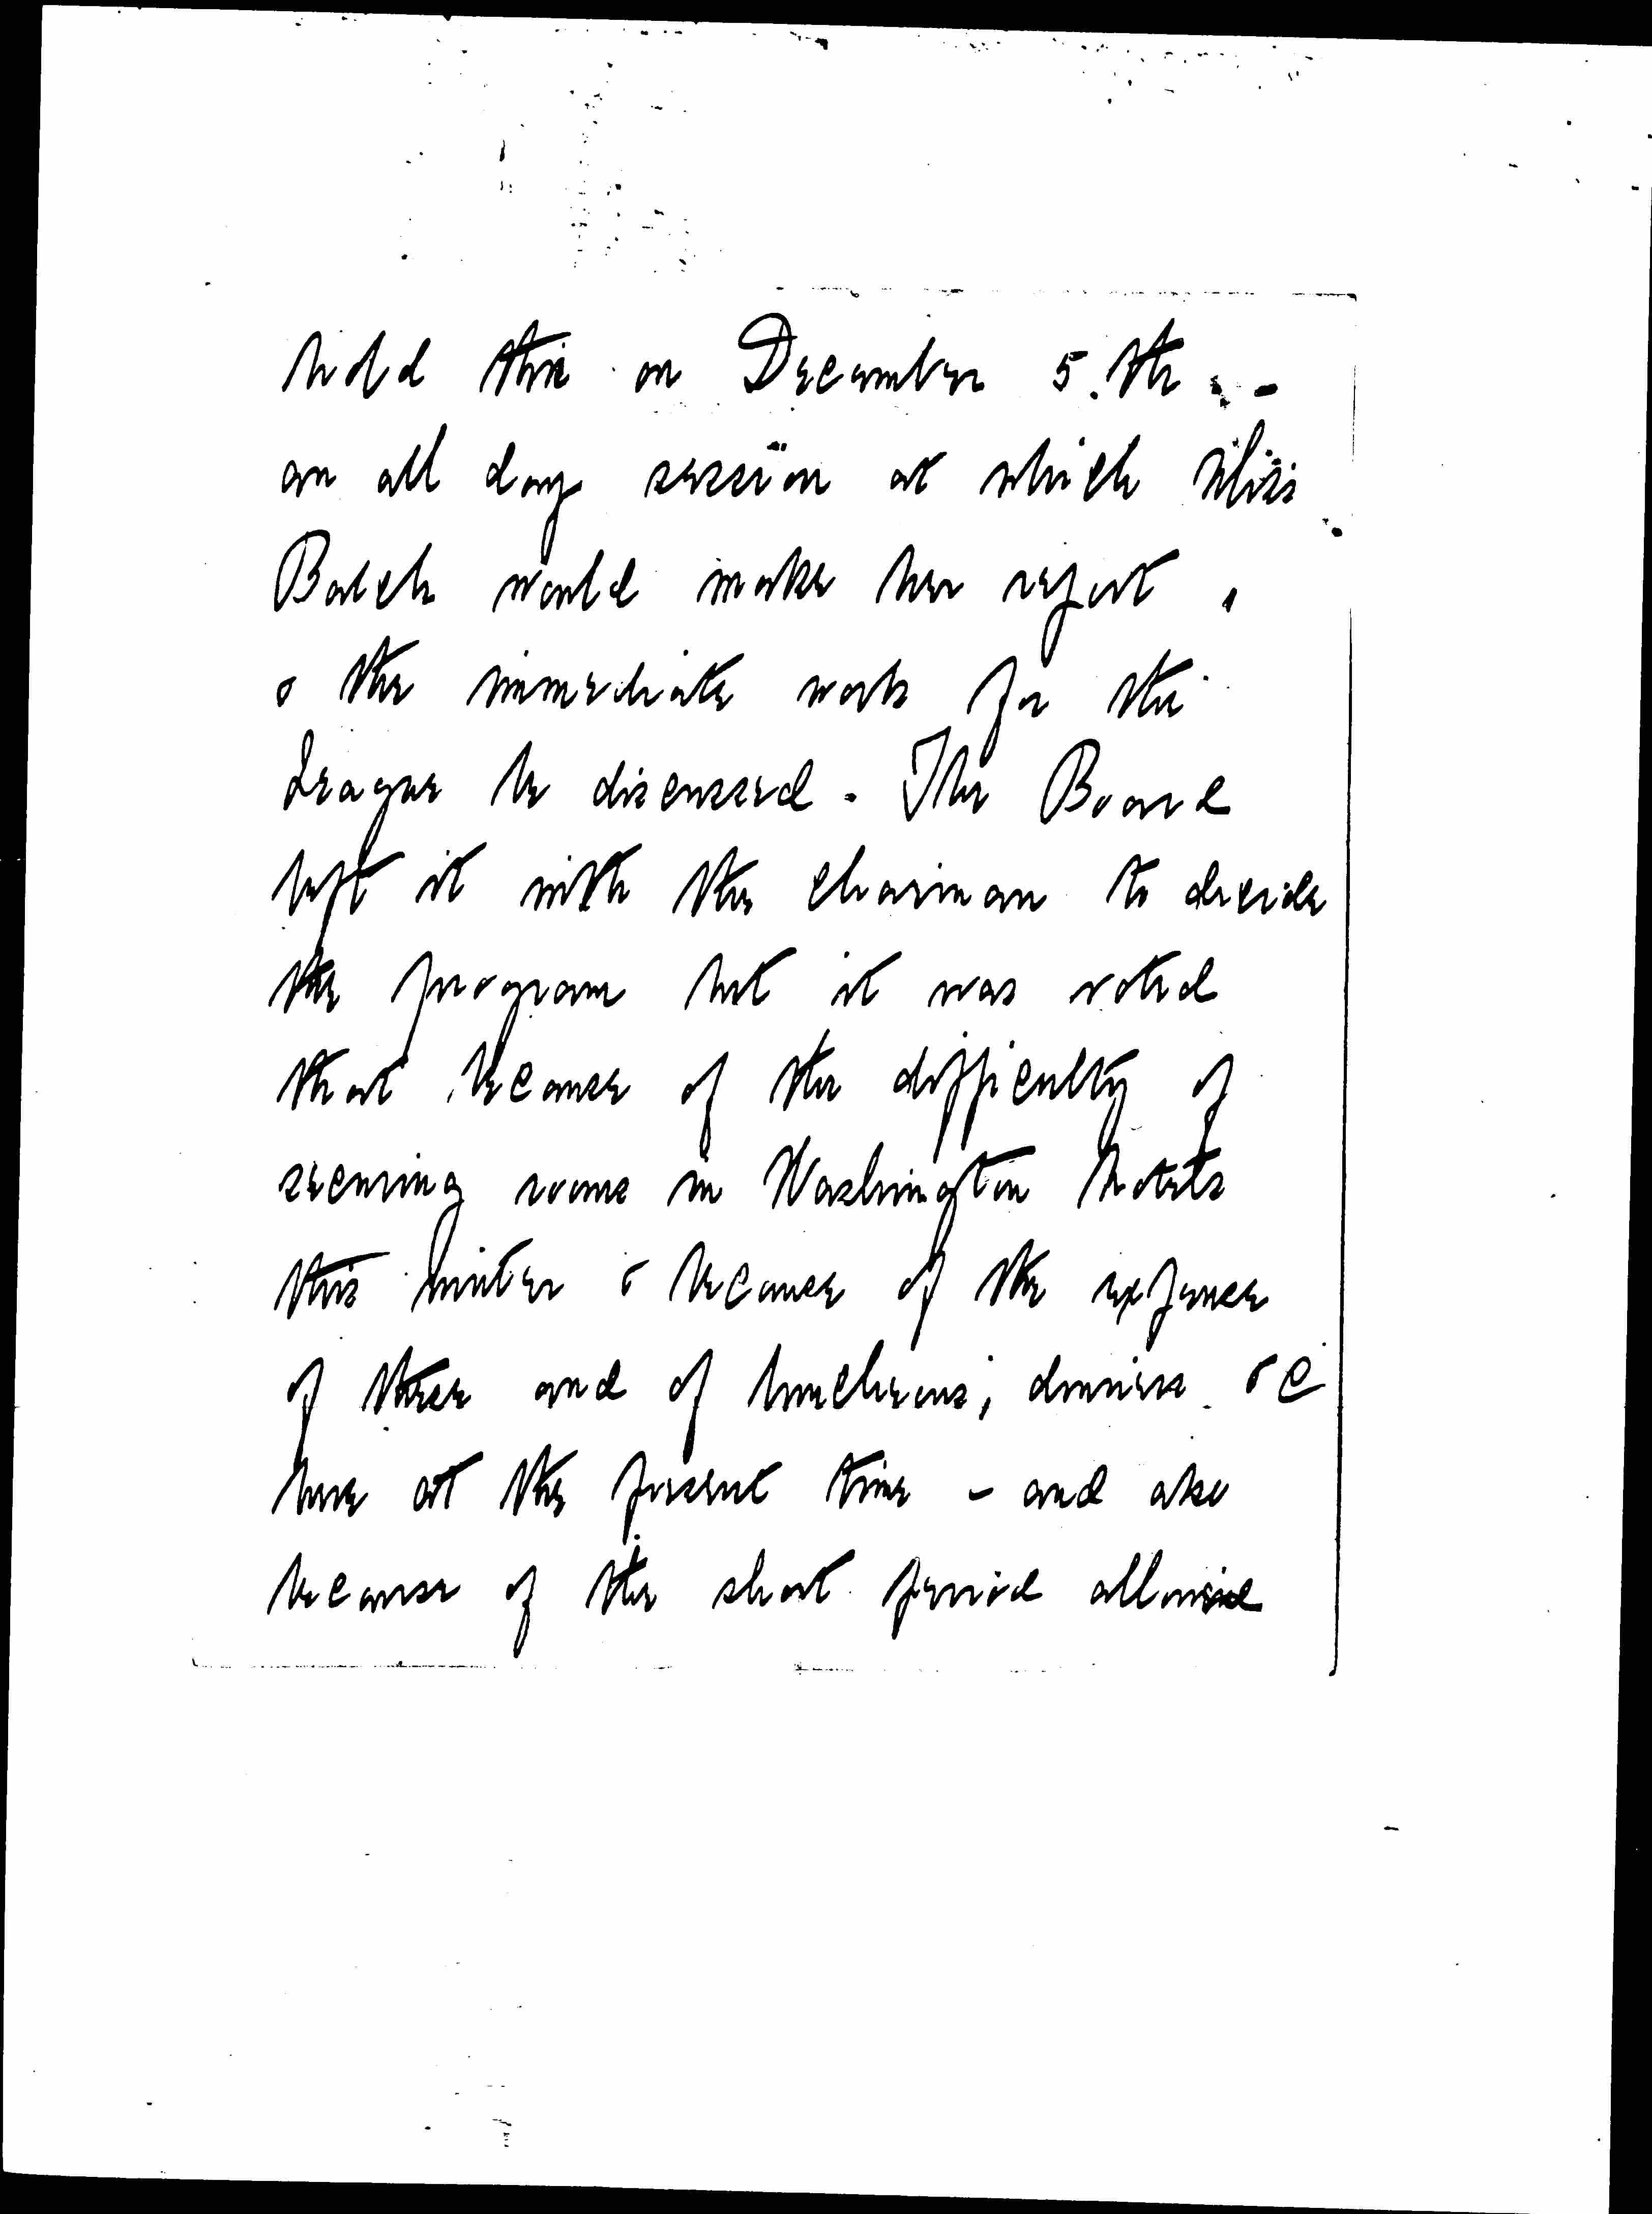 hold this on December 5.th -
an all day session at which Miss
Balch would make her report,
& the immediate work for the
League be discussed. The Board
left it with the chairman to decide
the program but it was voted
that because of the difficulty of
securing rooms in Washington hotels
this winter & because of the expense
of these and of luncheons, dinners &c
here at the present time - and also
because of the short period allowed